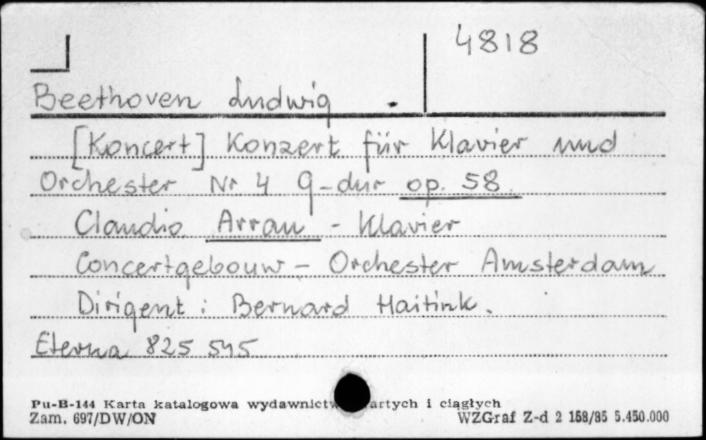 4818
Beethoven Ludwig
[Koncert] Konzert für Klavier und
Orchester Nr 4 G-dur op. 58.
Claudio Arrau - Klavier
Concertgebouw - Orchester Amsterdam
Dirigent: Bernard Haitink.
Eterna 825 545
Pu-B-144 Karta katalogowa wydawnictw artych i ciągłych
Zam. 697/DW/ON WZGraf Z-d 2 158/85 5.450.000